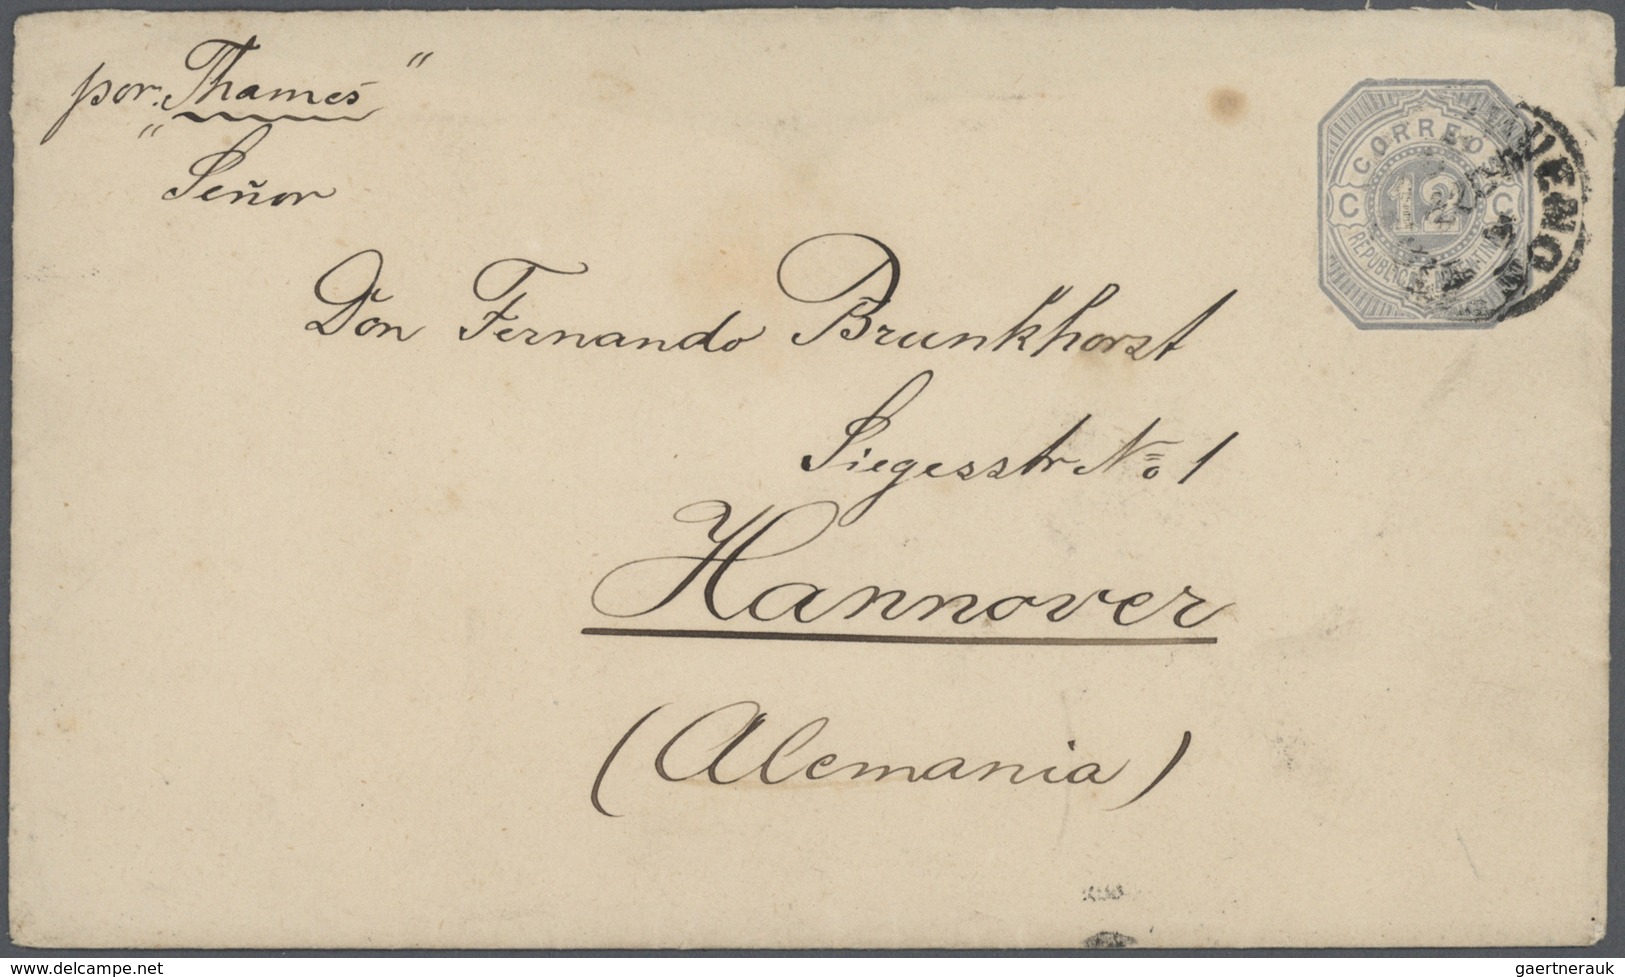 por "Thames"
Señor
Don Fernando Brunkhorst
Siegesstr No 1
Hannover
(Alemania)
CORREO
C 12 C
REPUBLICA
BUENO
www.delcampe.net
gaertnerauk